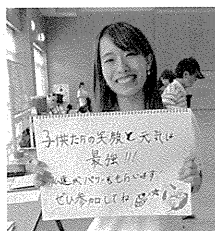 子供たちの笑顔と元気は
最強!!!
パワーをもらいます
ぜひ参加してね